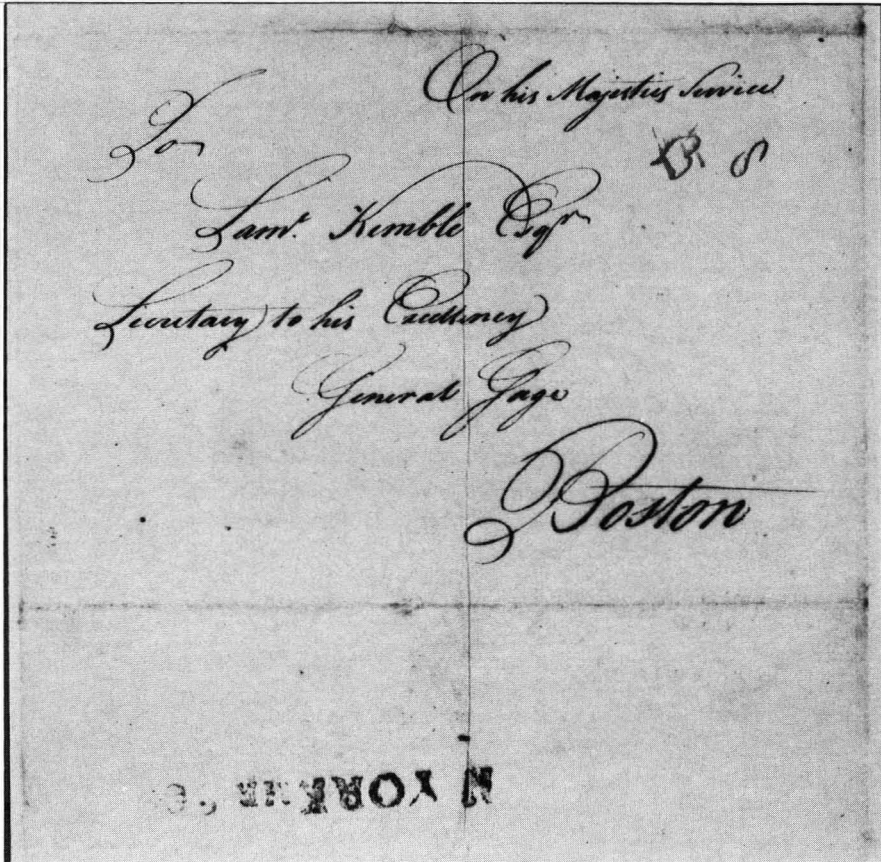 On his Majesties Service
8
To
Sam<sup>l</sup>. Kemble Esq<sup>r</sup>
Secretary to his Excellency
General Gage
Boston
N YORK